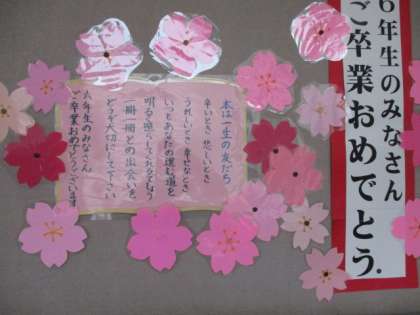 6年生のみなさん
ご卒業おめでとう.
本は一生の友だち
辛いとき 悲しいとき
うれしいとき 幸せなとき
いつもあなたの進む道を
明るく照らしてくれるでしょう
一冊一冊との出会いを
どうぞ大切にして下さい
六年生のみなさん
ご卒業おめでとうございます